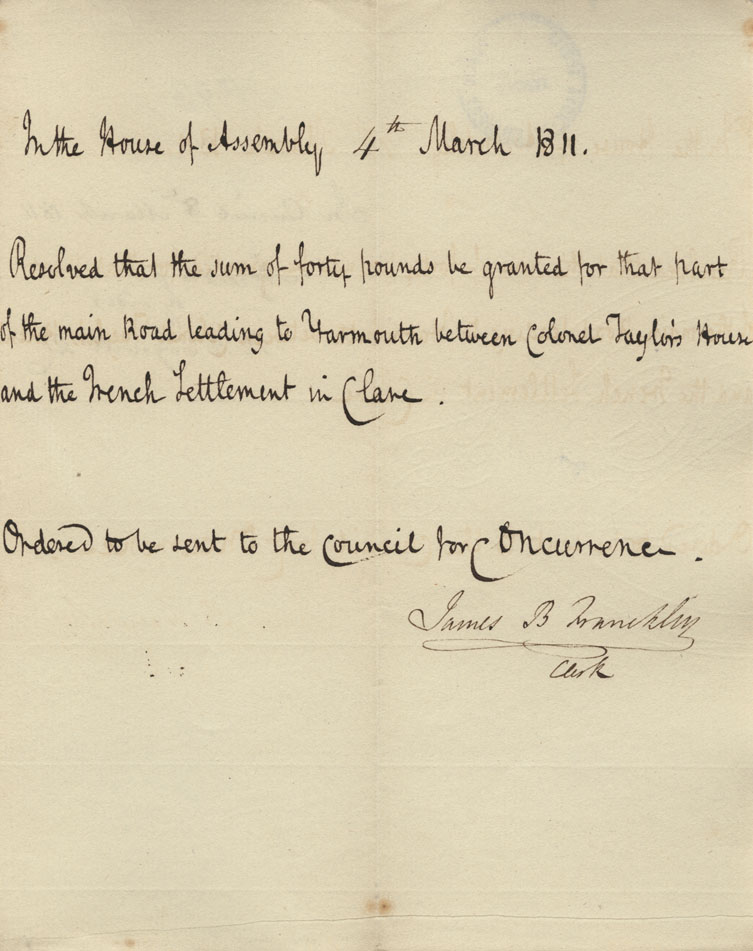 In the House of Assembly, 4th March 1811.
Resolved that the sum of forty pounds be granted for that part
of the main Road leading to Yarmouth between Colonel Taylor's House
and the French Settlement in Clare.
Ordered to be sent to the Council for Concurrence.
James B Franklin
Clerk